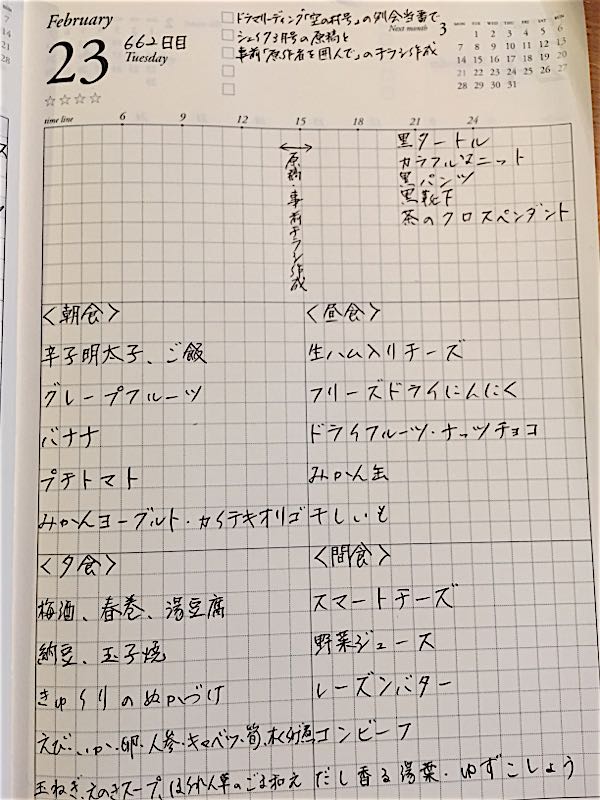 February
23
662日目
Tuesday
☆☆☆☆
ドラマリーディング「空の村号」の例会当番で
シェイク3月号の原稿と
事前「原作者を囲んで」のチラシ作成
Next month 3
MON TUE WED THU FRI SAT SUN
1 2 3 4 5 6
7 8 9 10 11 12 13
14 15 16 17 18 19 20
21 22 23 24 25 26 27
28 29 30 31
time line 6 9 12 15 18 21 24
原稿・事前チラシ作成
黒タートル
カラフルなニット
黒パンツ
黒靴下
茶のクロスペンダント
<朝食>
辛子明太子、ご飯
グレープフルーツ
バナナ
プチトマト
みかんヨーグルト・カイテキオリゴ
<昼食>
生ハム入りチーズ
フリーズドライにんにく
ドライフルーツ・ナッツチョコ
みかん缶
干しいも
<夕食>
梅酒、春巻、湯豆腐
納豆、玉子焼
きゅうりのぬかづけ
えび・いか・卵・人参・キャベツ・筍・木くらげ
玉ねぎ、えのきスープ、ほうれん草のごま和え
<間食>
スマートチーズ
野菜ジュース
レーズンバター
コンビーフ
だし香る湯葉・ゆずこしょう